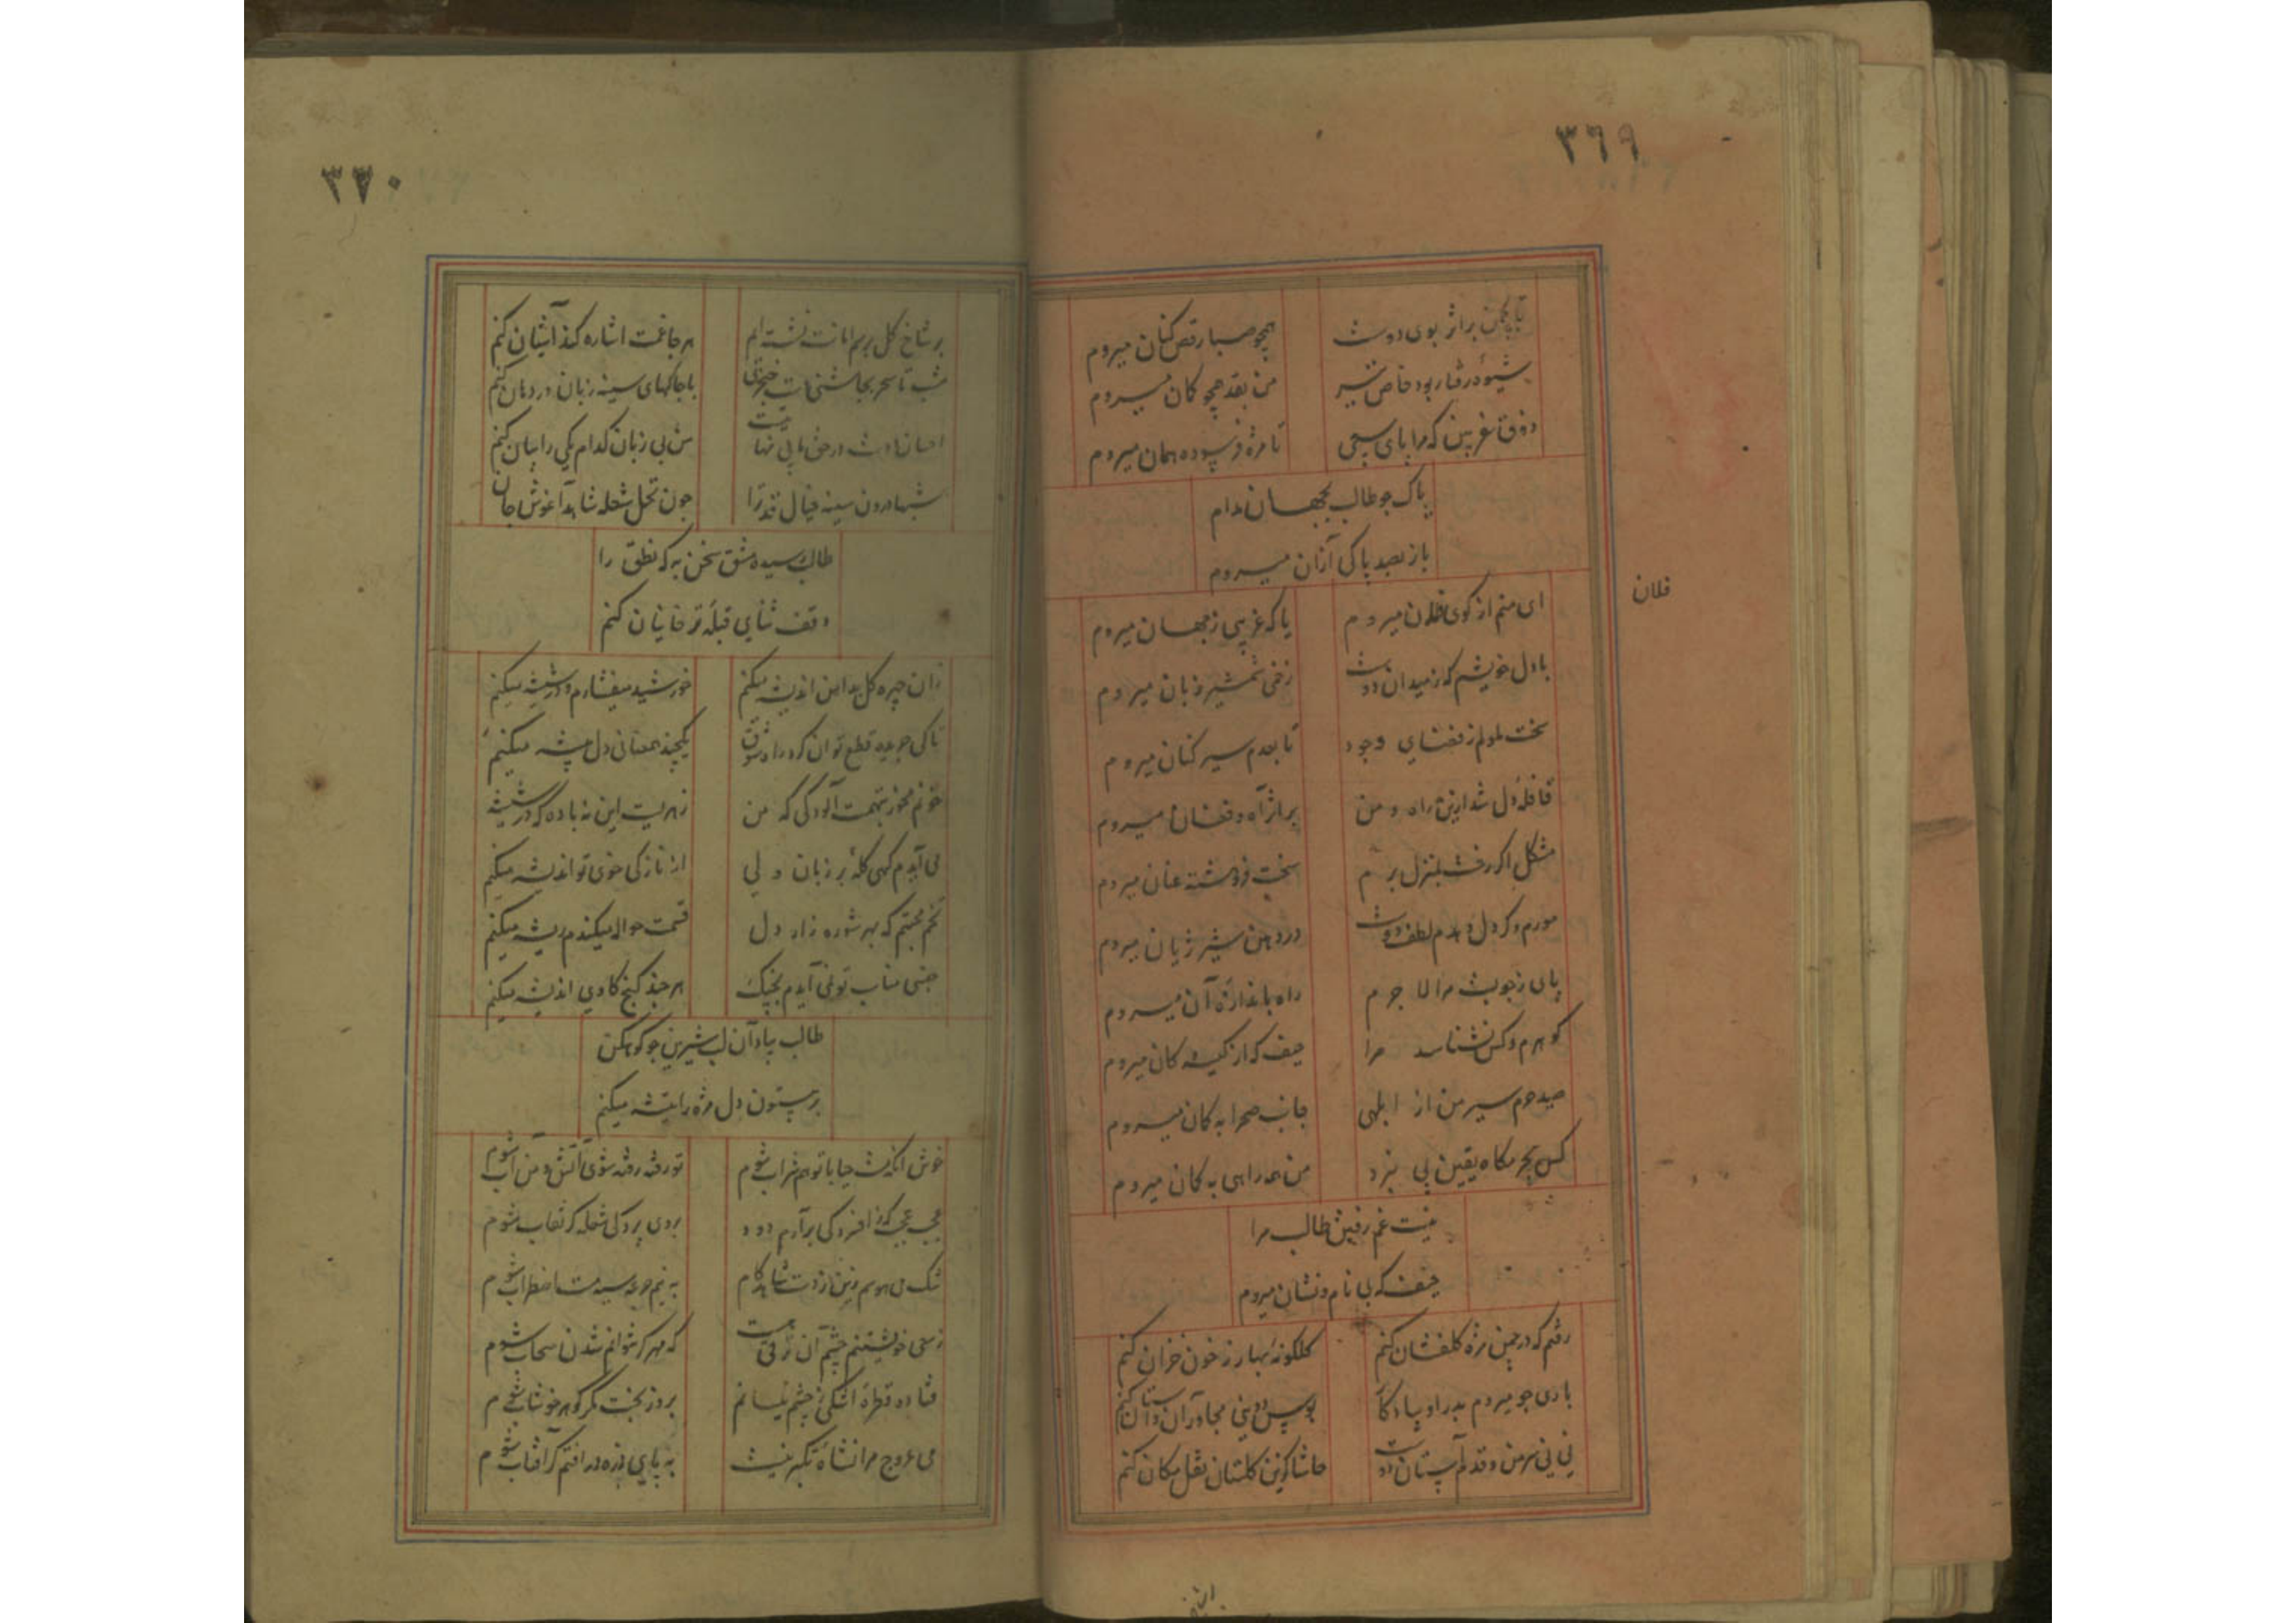 ۳۶۹
تا بچمن براثر بوی دوست همچو صبا رقص کنان میروم
شیوهٔ رفتار بود خاص تیر من بقد همچو کمان میروم
ذوق سفر بین که مرا پای سعی تا مژه فرسوده همان میروم
پاک چو طالب بجهان مدام
باز بصد پاکی ازان میروم
ای منم از کوی فلان میروم یا که غریبی ز جهان میروم
فلان
با دل خویشم که ز میدان دوست زخمی شمشیر زبان میروم
سخت ملولم ز فضای وجود تا بعدم سیر کنان میروم
قافلهٔ دل شد ازین راه و من براثر آه و فغان میروم
مشکل اگر رخت بمنزل برم سخت فروهشته عنان میروم
مورم و گر دل دهدم لطف دوست در دهن شیر ژیان میروم
پای ز چوبست مرا لا جرم راه باندازهٔ آن میروم
گوهرم و کس نشناسد مرا حیف که از کیسه کان میروم
صید حرم سیر من از ابلهی جانب صحرا به کمان میروم
کس بحرمگاه یقین پی نبرد من همه راهی به کمان میروم
نیست غم رفتن طالب مرا
حیف که بی نام و نشان میروم
رفتم که در چمن مژه گلفشان کنم گلگونهٔ بهار ز خون خزان کنم
باری چو میروم
نی نی سر من و قدم آستان دوست حاشا کزین گلستان نقل مکان کنم
۳۷۰
بر شاخ گل برسم امانت نشسته‌ایم هر جا غمت اشاره کند آشیان کنم
شب تا سحر با چاکهای سینه زبان در دهان کنم
من بی زبان کدام یکی را بیان کنم
شبها درون سینه خیال قد ترا چون نخل شعله شاهد آغوش جان
طالب رسیده مشق سخن به که نطق را
وقف ثنای قبلهٔ ترخانیان کنم
زان چهره گل بدامن اندیشه میکنم خورشید میفشارم و در شیشه میکنم
تا کی چو دیده قطع توان کرد راه شوق یکچند همعنانی دل پیشه میکنم
خونم مخور بتهمت آلودگی که من زهریست این نه باده که در شیشه
می آیدم گهی گله بر زبان ولی از نازکی خوی تو اندیشه میکنم
تخم محبتم که بهر شوره زار دل قسمت حواله میکندم ریشه میکنم
جنسی مناسب تو نمی آیدم بچنگ هر چند گنج کاوی اندیشه میکنم
طالب بیاد آن لب شیرین چو کوهکن
بر بیستون دل مژه را تیشه میکنم
خوش آنکه مست حیا با تو هم شراب شوم تو رفته رفته شوی آتش و من آب شوم
عجب عجب که ز افسردگی برآرم دود بروی پردگی شعله گر نقاب شوم
به نیم جرعه سیه مست اضطراب شوم
که مهر گر شوانم شدن سحاب شوم
فتاده قطرهٔ اشکی ز چشم نیسانم بروز بخت مگر گوهر خوشاب شوم
می عروج مرا نشاهٔ تکبر نیست به پای ذره در افتم گر آفتاب شوم